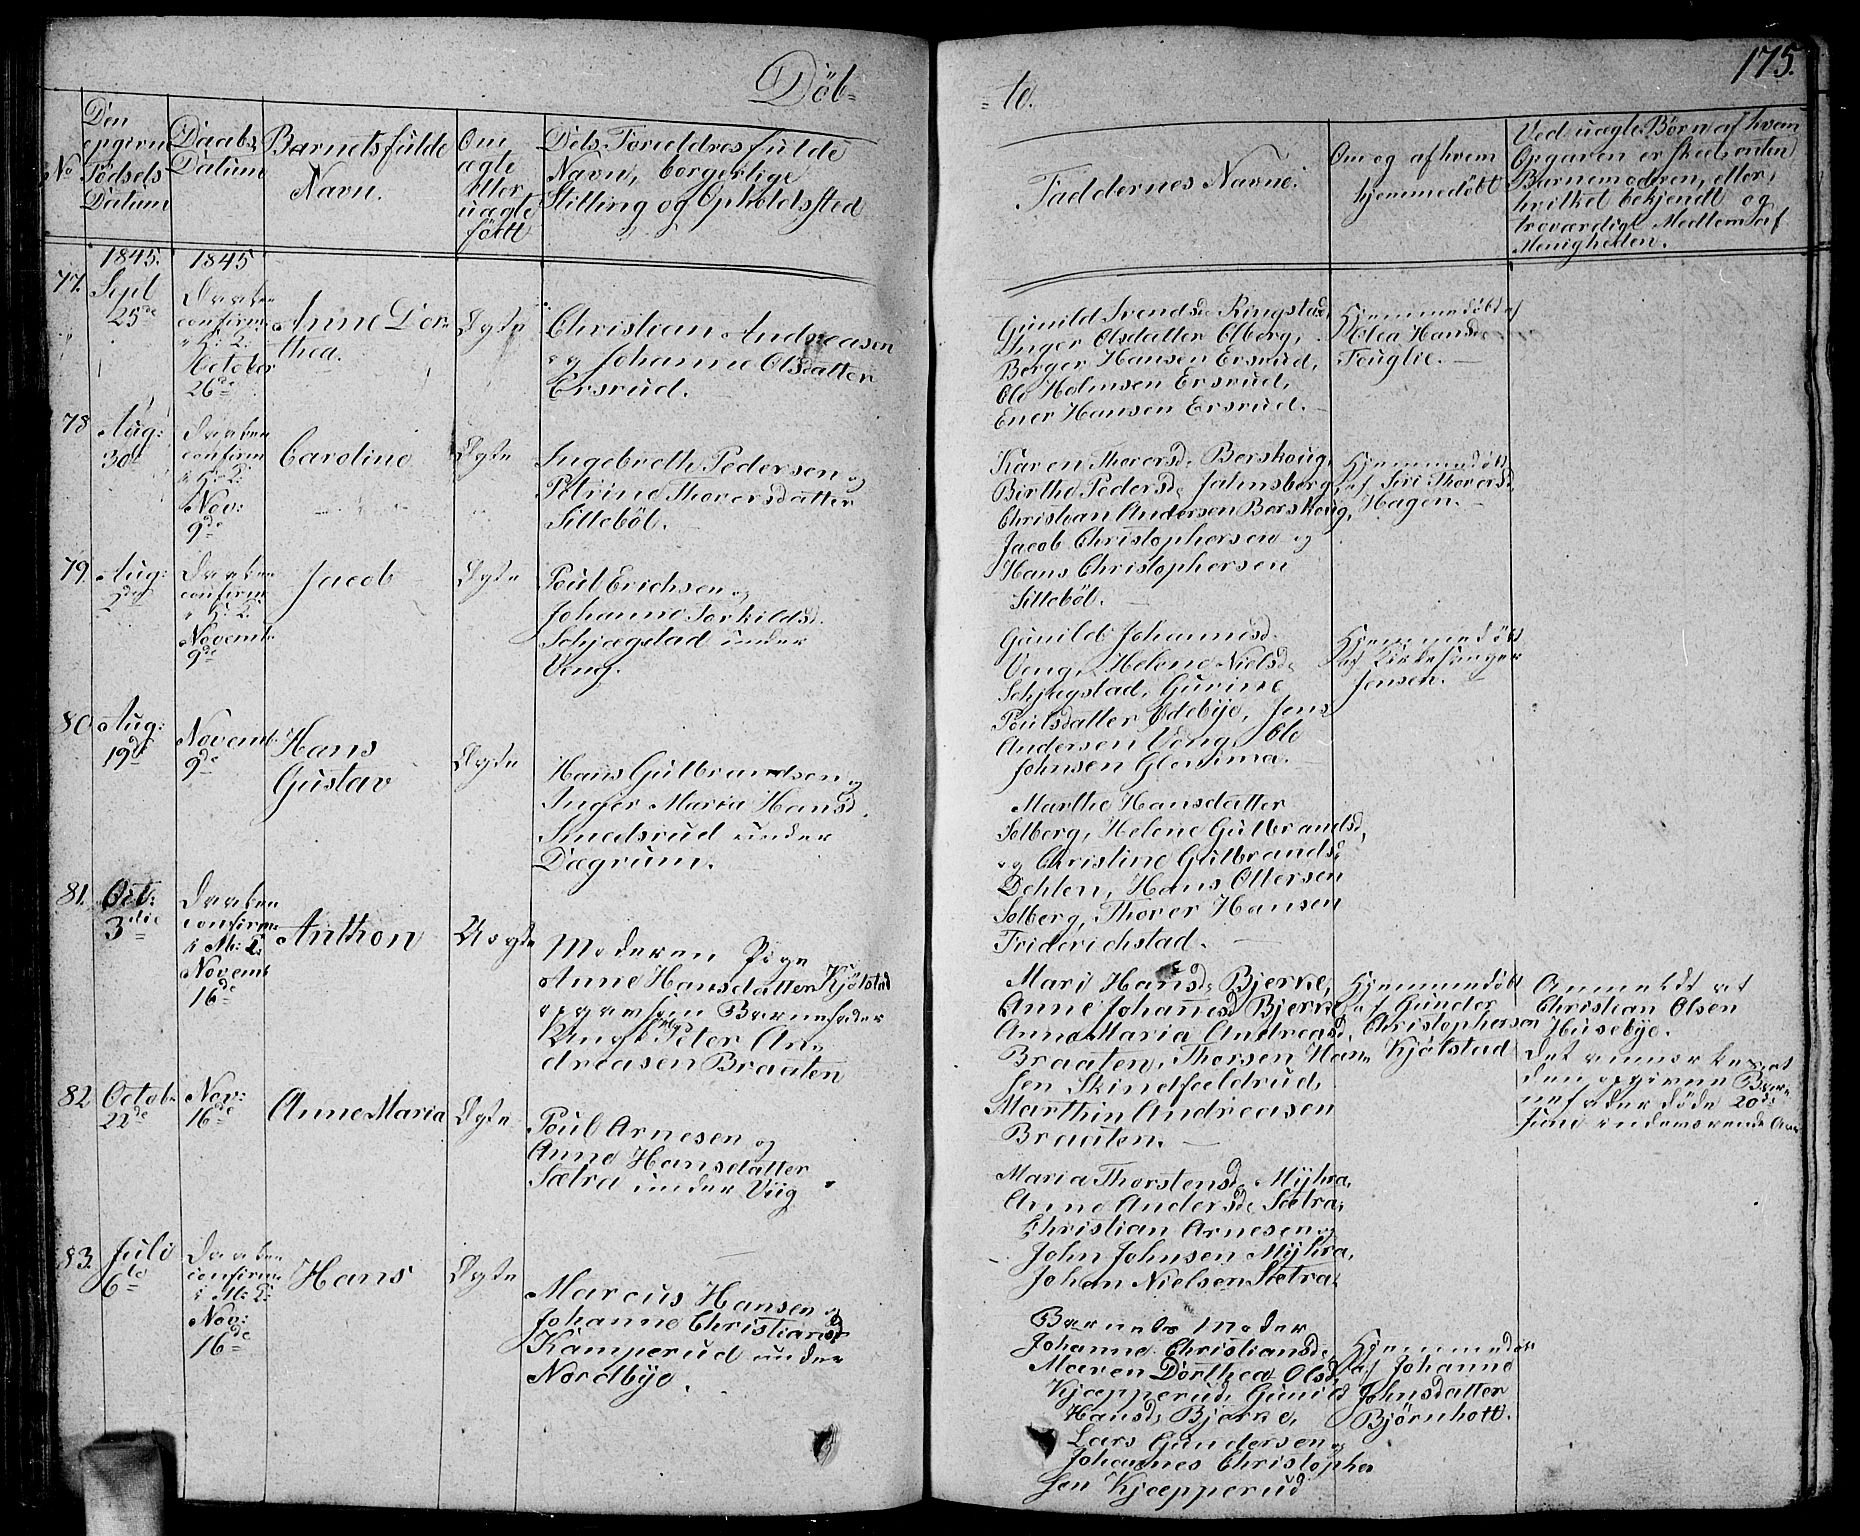 Döb-
-te.
175.
No
Den
opgivne
Födsels
Datum
Daabs
Datum
Barnets fulde
Navn.
Om
ægte
eller
uægte
födt
Dets Foreldres fulde
Navn, borgerlige
Stilling og Opholdsted
Faddernes Navne.
Om og af hvem
hjemmedöbt
Ved uægte Börn af hvem
Opgaven er skeet, enten
Barnemoderen, eller
hvilket bekjendt og
troværdigt Medlem af
Menigheden.
77.
1845.
Sept
25de
1845
Daaben
confirm:
i H: K:
October
26de
Anne Dor-
thea.
Ægte
Christian Andreasen
og Johanne Olsdatter
Ersrud.
Gunild Svendsd. Ringstad,
Inger Olsdatter Olberg,
Berger Hansen Ersrud,
Ole Holmsen Ersrud,
Ener Hansen Ersrud.
Hjemmedöbt af
Olea Hansd.
Fouglie.
78
Aug:
30te
Daaben
confirm
i H: K:
Nov:
9de
Caroline
Ægte
Ingebreth Pedersen og
Petrine Thorersdatter
Sitteböl.
Karen Thorersd. Berskoug,
Birthe Pedersd. Jalmsberg,
Christian Andersen Berskoug,
Jacob Christophersen og
Hans Christophersen
Sitteböl.
Hjemmedöbt
af Siri Thorersd.
Hagen.
79
Aug:
2den
Daaben
confirm
i H: K:
Novemb.
9de
Jacob
Ægte
Poul Erichsen og
Johanne Torkildsd.
Schjægstad under
Veng.
Gunild Johannesd.
Veng, Helene Nielsd.
Schjægstad, Gurine
Poulsdatter Edebye, Jens
Andersen Veng, Ole
Johnsen Glomma.
Hjemmedöbt
af Kirkesanger
Jensen.
80
Aug:
19de
Novemb.
9de
Hans
Gustav
Ægte
Hans Gulbrandsen og
Inger Maria Hansd.
Smedsrud under
Dægrum.
Marthe Hansdatter
Solberg, Helene Gulbrandsd,
og Christine Gulbrandsd.
Dehlen, Hans Ottersen
Solberg, Thorer Hansen
Friderichstad.
81.
Oct:
3die
Daaben
confirm:
i M: K:
Novemb
16de
Anthon
Uægte
Moderen Pige
Anne Hansdatter Kjölstad
opgav som Barnefader
Ungk. Peter An-
dreasen Braaten
Mari Hansd. Bjerke,
Anne Johannesd Bjerke
Anne Maria Andreasd.
Braaten, Thorsen Han-
sen Skindfældrud,
Marthin Andreasen
Braaten.
Hjemmedöbt
af Gunder
Christophersen
Kjölstad
Anmeldt at
Christian Olsen
Husebye.
Det anmærkes at
den opgivne Bar-
nefader döde 20de
Juni indeværende Aar
82
Octob.
22de
Nov:
16de
Anne Maria
Ægte
Poul Arnesen og
Anne Hansdatter
Sætra under Viig
Maria Thorstensd. Myhra,
Anne Andersd. Sætra,
Christian Arnesen og
John Johnsen Myhra,
Johan Nielsen Sætra.
83.
Juli
6te
Daaben
confirm:
i M: K:
Nov:
16de
Hans
Ægte
Marcus Hansen og
Johanne Christiansd
Kamperud under
Nordbye.
Barnets Moder
Johanne Christiansd.,
Maren Dorthea Olsd.
Kjæpperud, Gunild
Hansd. Bjerke,
Lars Gundersen og
Johannes Christopher
sen Kjæpperud
Hjemmedöbt
af Johanne
Johnsdatter
Björnholt.